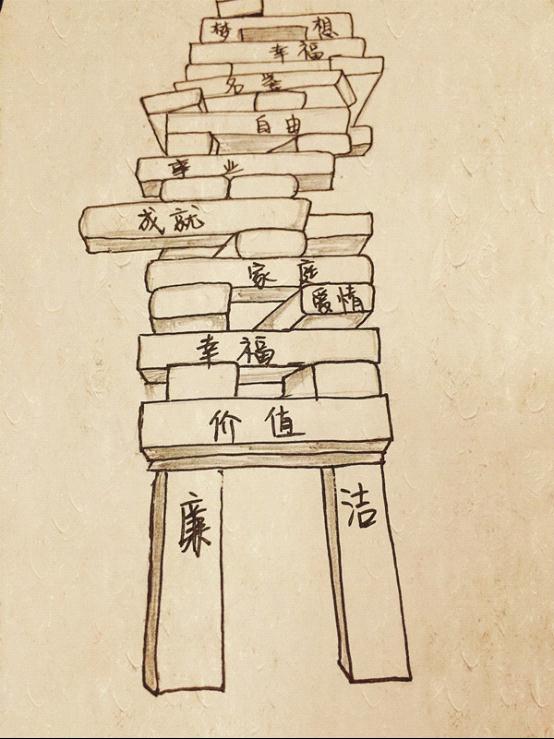 梦想
幸福
名誉
自由
事业
成就
家庭
爱情
幸福
价值
廉洁